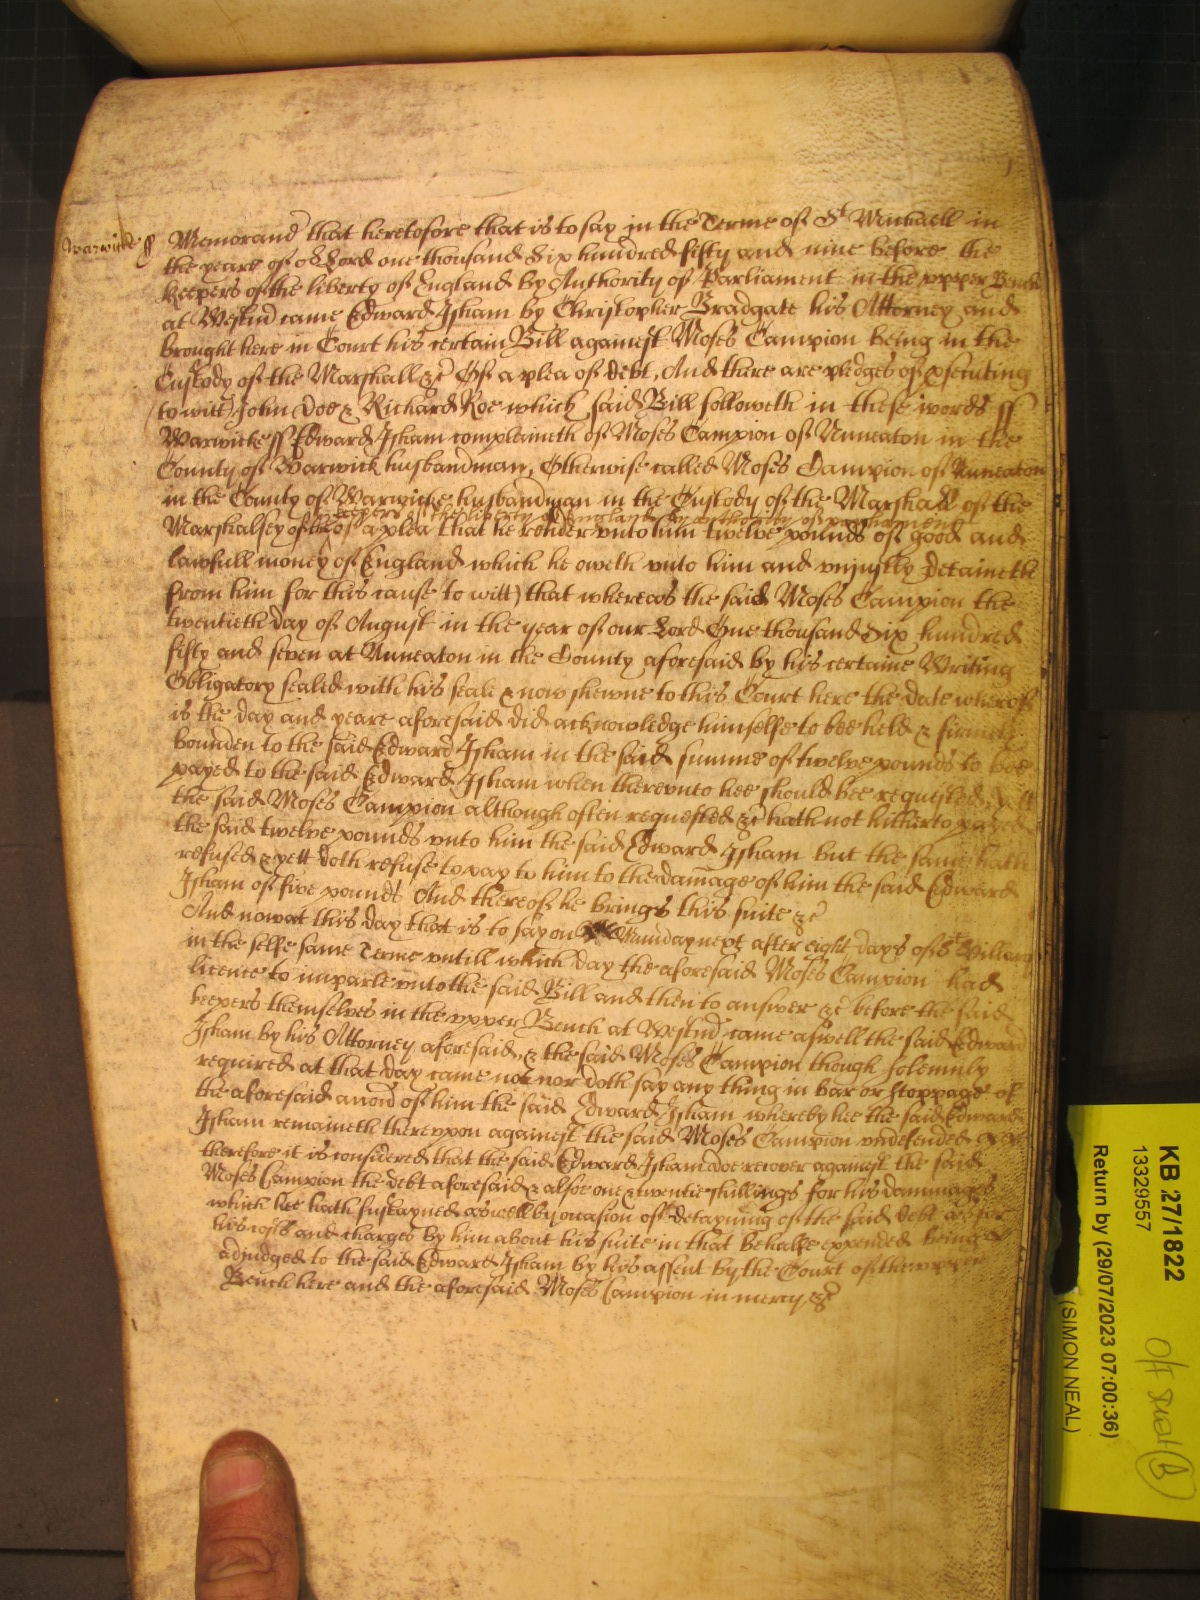 Warwicke ss Memorand that heretofore that is to say in the Terme of St Michaell in
the yeare of or Lord one thousand Six hundred fifty and nine before the
keepers of the liberty of England by Authority of Parliament in the upper Bench
at Westmr came Edward Isham by Christopher Bradgate his Attorney and
brought here in Court his certain Bill against Moses Campion being in the
Custody of the Marshall &c Of a plea of debt, And there are pledges of prosecuting
to witt John Doe & Richard Roe which said Bill followeth in these words ss
Warwicke ss Edward Isham complaineth of Moses Campion of Nuneaton in the
County of Warwick husbandman, Otherwise called Moses Campion of Nuneaton
in the County of Warwicke husbandman in the Custody of the Marshall of the
keepers of the liberty of England by authority of parliament
Marshalsey of the of a plea that he render unto him twelve pounds of good and
lawfull money of England which he oweth unto him and unjustly detaineth
from him for this cause to witt) that whereas the said Moses Campion the
twentieth day of August in the year of our Lord One thousand Six hundred
fifty and seven at Nuneaton in the County aforesaid by his certaine Writing
Obligatory sealed with his seale & now shewne to this Court here the date whereof
is the day and yeare aforesaid did acknowledge himselfe to bee held & firmely
bounden to the said Edward Isham in the said summe of twelve pounds to bee
payed to the said Edward Isham when thereunto hee should bee requested Yett
the said Moses Campion although often requested &c hath not hitherto payed
the said twelve pounds unto him the said Edward Isham but the same hath
refused & yett doth refuse to pay to him to the damage of him the said Edward
Isham of five pounds And thereof he brings this suite &c
And now at this day that is to say on Munday next after eight days of St Hillary
in the selfe same Terme untill which day the aforesaid Moses Campion had
licence to imparle unto the said Bill and then to answer &c before the said
keepers themselves in the upper Bench at Westmr came aswell the said Edward
Isham by his Attorney aforesaid, & the said Moses Campion though solemnly
required at that day came not nor doth say any thing in bar or stoppage of
the aforesaid accion of him the said Edward Isham whereby hee the said Edward
Isham remaineth thereupon against the said Moses Campion undefended
therefore it is considered that the said Edward Isham doe recover against the said
Moses Campion the debt aforesaid & alsoe one & twentie shillings for his dammages
which hee hath sustayned aswell by occasion of detayning of the said debt as for
his costs and charges by him about his suite in that behalfe expended being
adjudged to the said Edward Isham by his assent by the Court of the upper
Bench here and the aforesaid Moses Campion in mercy &c
KB 27/1822
13329557
Return by (29/07/2023 07:00:36)
(SIMON NEAL)